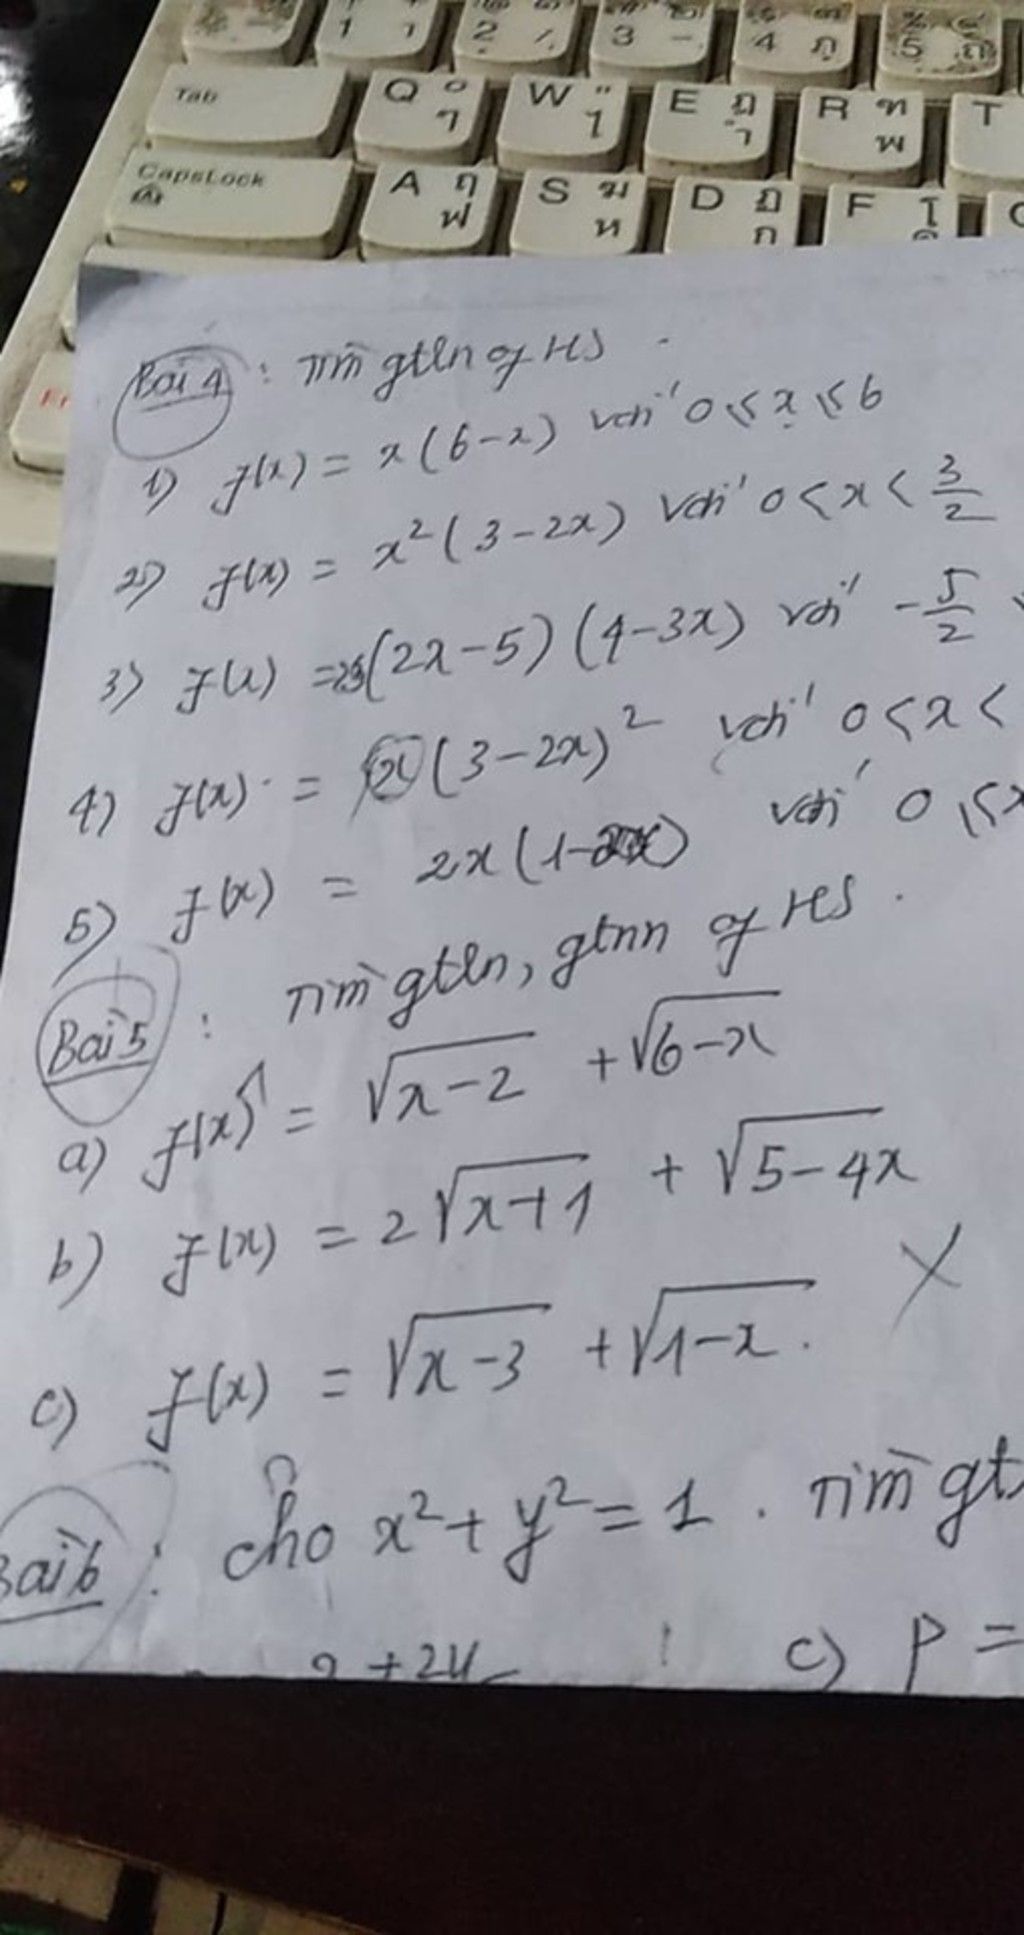 1 2 3 4 5
Tab Q W E R T
CapsLock A S D F
Bài 4 : Tìm gtln of HS .
1) f(x) = x(6-x) với 0 ≤ x ≤ 6
2) f(x) = x²(3-2x) với 0 < x < 3/2
3) f(x) = (2x-5)(4-3x) với -5/2
4) f(x) = x(3-2x)² với 0 < x <
5) f(x) = 2x(1- ) với 0 ≤ x
Bài 5 : Tìm gtln, gtnn of HS .
a) f(x) = √(x-2) + √(6-x)
b) f(x) = 2√(x+1) + √(5-4x)
c) f(x) = √(x-3) + √(1-x) .
Bài 6 : Cho x² + y² = 1 . Tìm gt
+ 2y c) P =